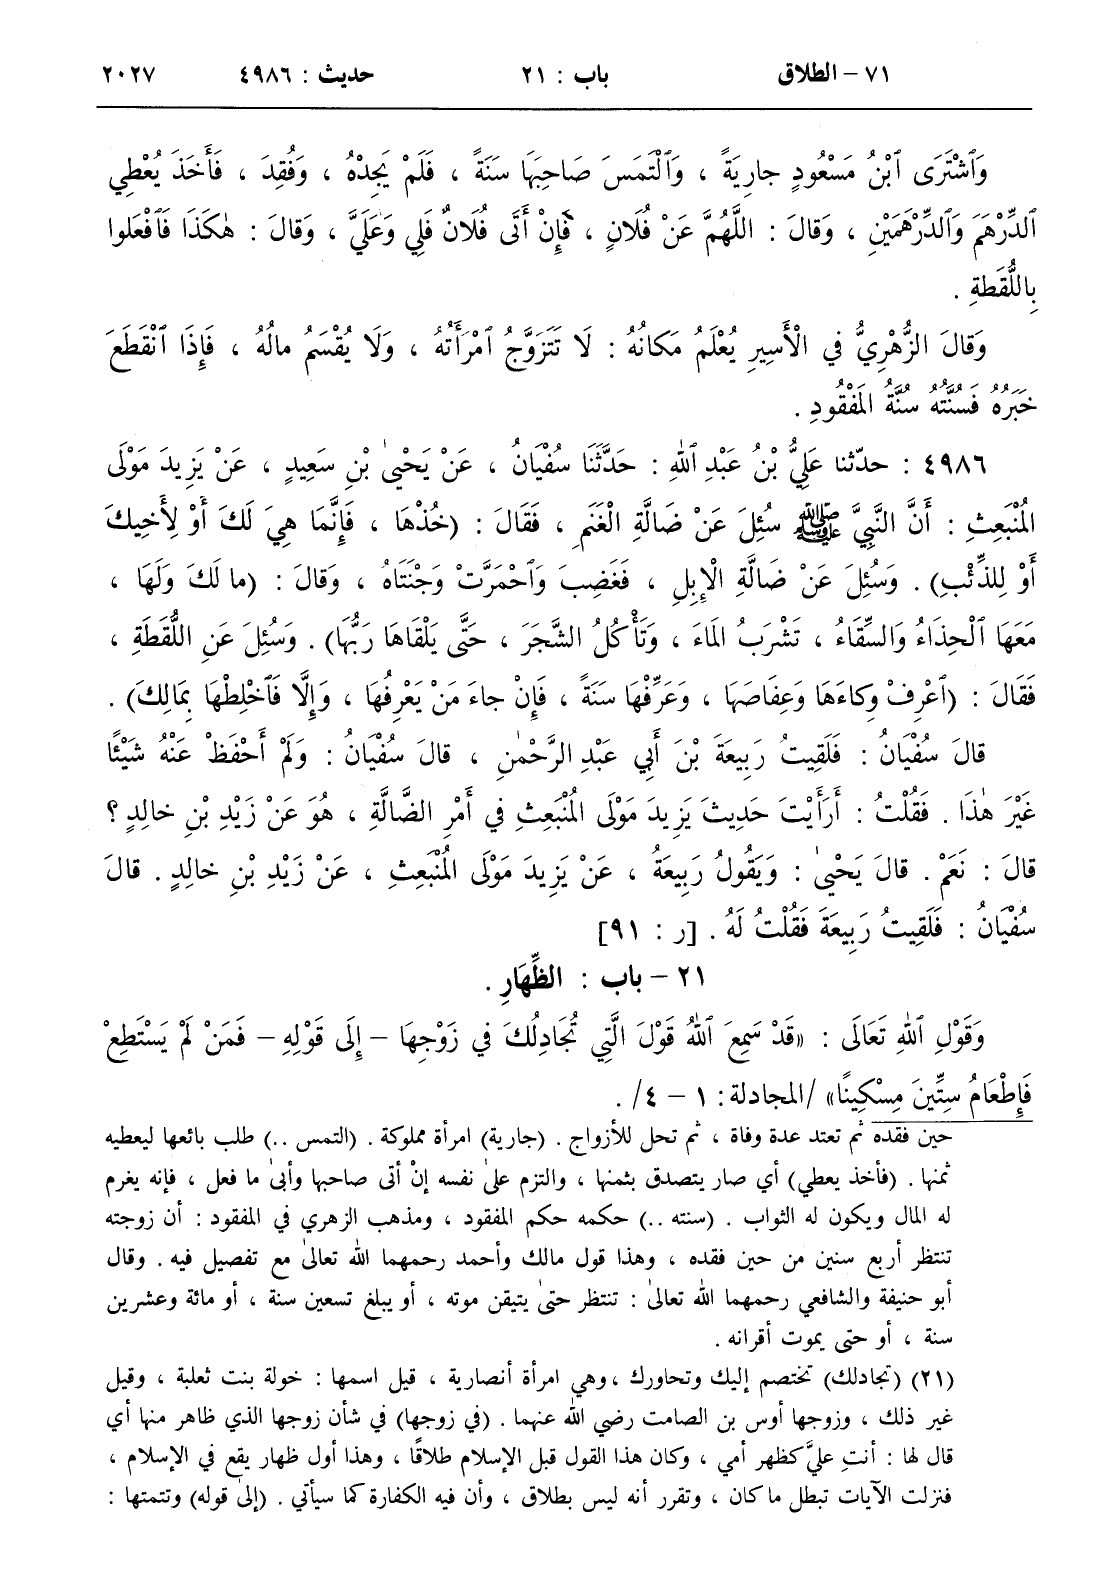 ٧١ – الطلاق باب : ٢١ حديث : ٤٩٨٦ ٢٠٢٧
وَٱشْتَرَى ٱبْنُ مَسْعُودٍ جارِيَةً ، وَٱلْتَمَسَ صَاحِبَهَا سَنَةً ، فَلَمْ يَجِدْهُ ، وَفُقِدَ ، فَأَخَذَ يُعْطِي
ٱلدِّرْهَمَ وَٱلدِّرْهَمَيْنِ ، وَقالَ : اللَّهُمَّ عَنْ فُلَانٍ ، فَإِنْ أَتَى فُلَانٌ فَلِي وَعَلَيَّ ، وَقالَ : هٰكَذَا فَٱفْعَلوا
بِاللُّقَطةِ .
وَقالَ الزُّهْرِيُّ في الْأَسِيرِ يُعْلَمُ مَكانُهُ : لَا تَتَزَوَّجُ ٱمْرَأَتُهُ ، وَلَا يُقْسَمُ مالُهُ ، فَإِذَا ٱنْقَطَعَ
خَبَرُهُ فَسُنَّتُهُ سُنَّةُ المَفْقُودِ .
٤٩٨٦ : حدّثنا عَلِيُّ بْنُ عَبْدِ ٱللهِ : حَدَّثَنَا سُفْيَانُ ، عَنْ يَحْيىٰ بْنِ سَعِيدٍ ، عَنْ يَزِيدَ مَوْلَى
المُنْبَعِثِ : أَنَّ النَّبِيَّ ﷺ سُئِلَ عَنْ ضَالَّةِ الْغَنَمِ ، فَقَالَ : (خُذْهَا ، فَإِنَّمَا هِيَ لَكَ أَوْ لِأَخِيكَ
أَوْ لِلذِّئْبِ) . وَسُئِلَ عَنْ ضَالَّةِ الْإِبِلِ ، فَغَضِبَ وَٱحْمَرَّتْ وَجْنَتَاهُ ، وَقالَ : (ما لَكَ وَلَهَا ،
مَعَهَا ٱلْحِذَاءُ وَالسِّقَاءُ ، تَشْرَبُ المَاءَ ، وَتَأْكُلُ الشَّجَرَ ، حَتَّى يَلْقَاهَا رَبُّهَا) . وَسُئِلَ عَنِ اللُّقَطَةِ ،
فَقَالَ : (ٱعْرِفْ وِكاءَهَا وَعِفَاصَهَا ، وَعَرِّفْهَا سَنَةً ، فَإِنْ جاءَ مَنْ يَعْرِفُهَا ، وَإِلَّا فَٱخْلِطْهَا بِمَالِكَ) .
قالَ سُفْيَانُ : فَلَقِيتُ رَبِيعَةَ بْنَ أَبِي عَبْدِ الرَّحْمٰنِ ، قالَ سُفْيَانُ : وَلَمْ أَحْفَظْ عَنْهُ شَيْئًا
غَيْرَ هٰذَا . فَقُلْتُ : أَرَأَيْتَ حَدِيثَ يَزِيدَ مَوْلَى المُنْبَعِثِ في أَمْرِ الضَّالَّةِ ، هُوَ عَنْ زَيْدِ بْنِ خالِدٍ ؟
قالَ : نَعَمْ . قالَ يَحْيىٰ : وَيَقُولُ رَبِيعَةُ ، عَنْ يَزِيدَ مَوْلَى المُنْبَعِثِ ، عَنْ زَيْدِ بْنِ خالِدٍ . قالَ
سُفْيَانُ : فَلَقِيتُ رَبِيعَةَ فَقُلْتُ لَهُ . [ر : ٩١]
٢١ – باب : الظِّهَارِ .
وَقَوْلِ ٱللهِ تَعَالَى : «قَدْ سَمِعَ ٱللهُ قَوْلَ الَّتِي تُجَادِلُكَ في زَوْجِهَا – إِلَى قَوْلِهِ – فَمَنْ لَمْ يَسْتَطِعْ
فَإِطْعَامُ سِتِّينَ مِسْكِينًا» /المجادلة: ١ – ٤/ .
حين فقده ثم تعتد عدة وفاة ، ثم تحل للأزواج . (جارية) امرأة مملوكة . (التمس ..) طلب بائعها ليعطيه
ثمنها . (فأخذ يعطي) أي صار يتصدق بثمنها ، والتزم علىٰ نفسه إنْ أتى صاحبها وأبىٰ ما فعل ، فإنه يغرم
له المال ويكون له الثواب . (سنته ..) حكمه حكم المفقود ، ومذهب الزهري في المفقود : أن زوجته
تنتظر أربع سنين من حين فقده ، وهذا قول مالك وأحمد رحمهما الله تعالىٰ مع تفصيل فيه . وقال
أبو حنيفة والشافعي رحمهما الله تعالىٰ : تنتظر حتىٰ يتيقن موته ، أو يبلغ تسعين سنة ، أو مائة وعشرين
سنة ، أو حتى يموت أقرانه .
(٢١) (تجادلك) تختصم إليك وتحاورك ، وهي امرأة أنصارية ، قيل اسمها : خولة بنت ثعلبة ، وقيل
غير ذلك ، وزوجها أوس بن الصامت رضي الله عنهما . (في زوجها) في شأن زوجها الذي ظاهر منها أي
قال لها : أنتِ عليَّ كظهر أمي ، وكان هذا القول قبل الإسلام طلاقًا ، وهذا أول ظهار يقع في الإسلام ،
فنزلت الآيات تبطل ما كان ، وتقرر أنه ليس بطلاق ، وأن فيه الكفارة كما سيأتي . (إلىٰ قوله) وتتمتها :